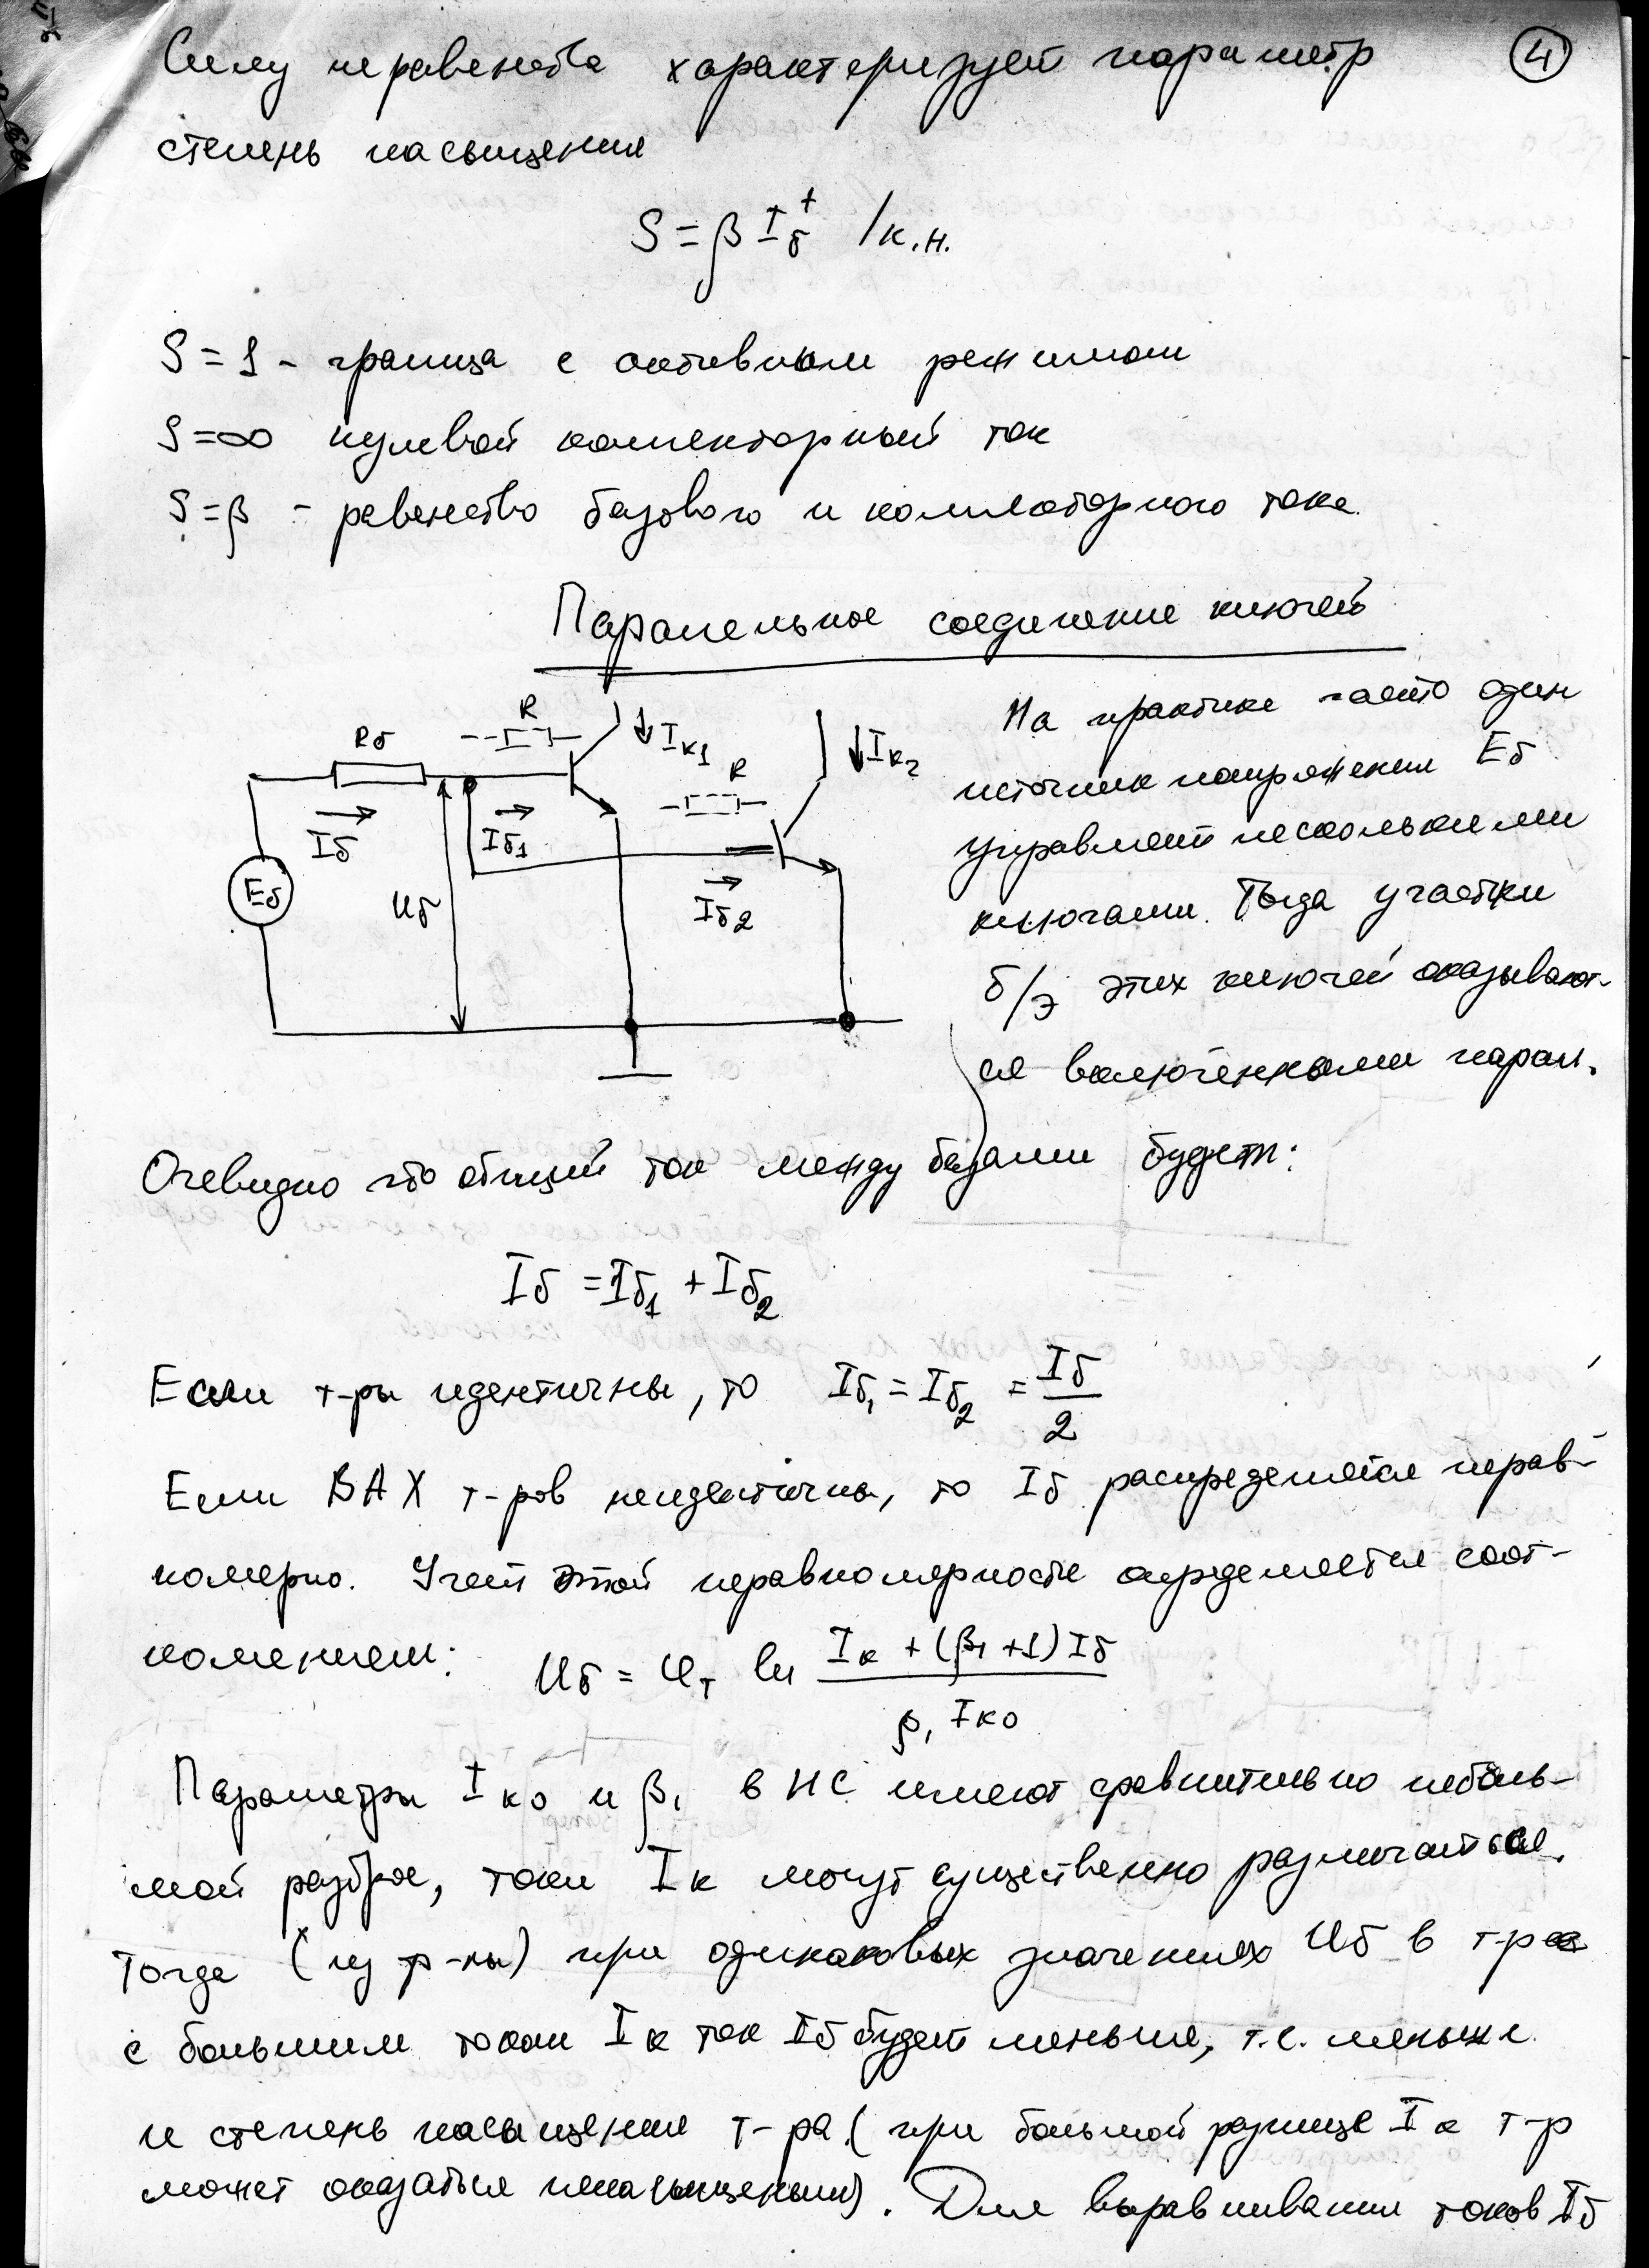 Силу неравенства характеризует параметр
4
степень насыщения
S = β Iб⁺ / к.н.
S = 1 - граница с активным режимом
S = ∞ нулевой коллекторный ток
S = β - равенство базового и коллекторного тока.
Параллельное соединение ключей
Rб
R
Iк1
R
Iк2
Iб
Iб1
Eб
Uб
Iб2
На практике часто один
источник напряжения Eб
управляет несколькими
ключами. Тогда участки
б/э этих ключей оказывают-
ся включёнными парал.
Очевидно что общий ток между базами будет:
Iб = Iб1 + Iб2
Если т-ры идентичны, то Iб1 = Iб2 = Iб / 2
Если ВАХ т-ров неидентичны, то Iб распределяется нерав-
номерно. Учет этой неравномерности определяется соот-
ношением: Uб = φт ln (Iк + (β1 + 1) Iб) / (β1 Iк0)
Параметры Iк0 и β1 в ИС имеют сравнительно неболь-
шой разброс, токи Iк могут существенно различаться.
Тогда (из ф-лы) при одинаковых значениях Uб в т-ре
с большим током Iк ток Iб будет меньше, т.е. меньше
и степень насыщения т-ра (при большой разнице Iк т-р
может оказаться ненасыщеным). Для выравнивания токов Iб